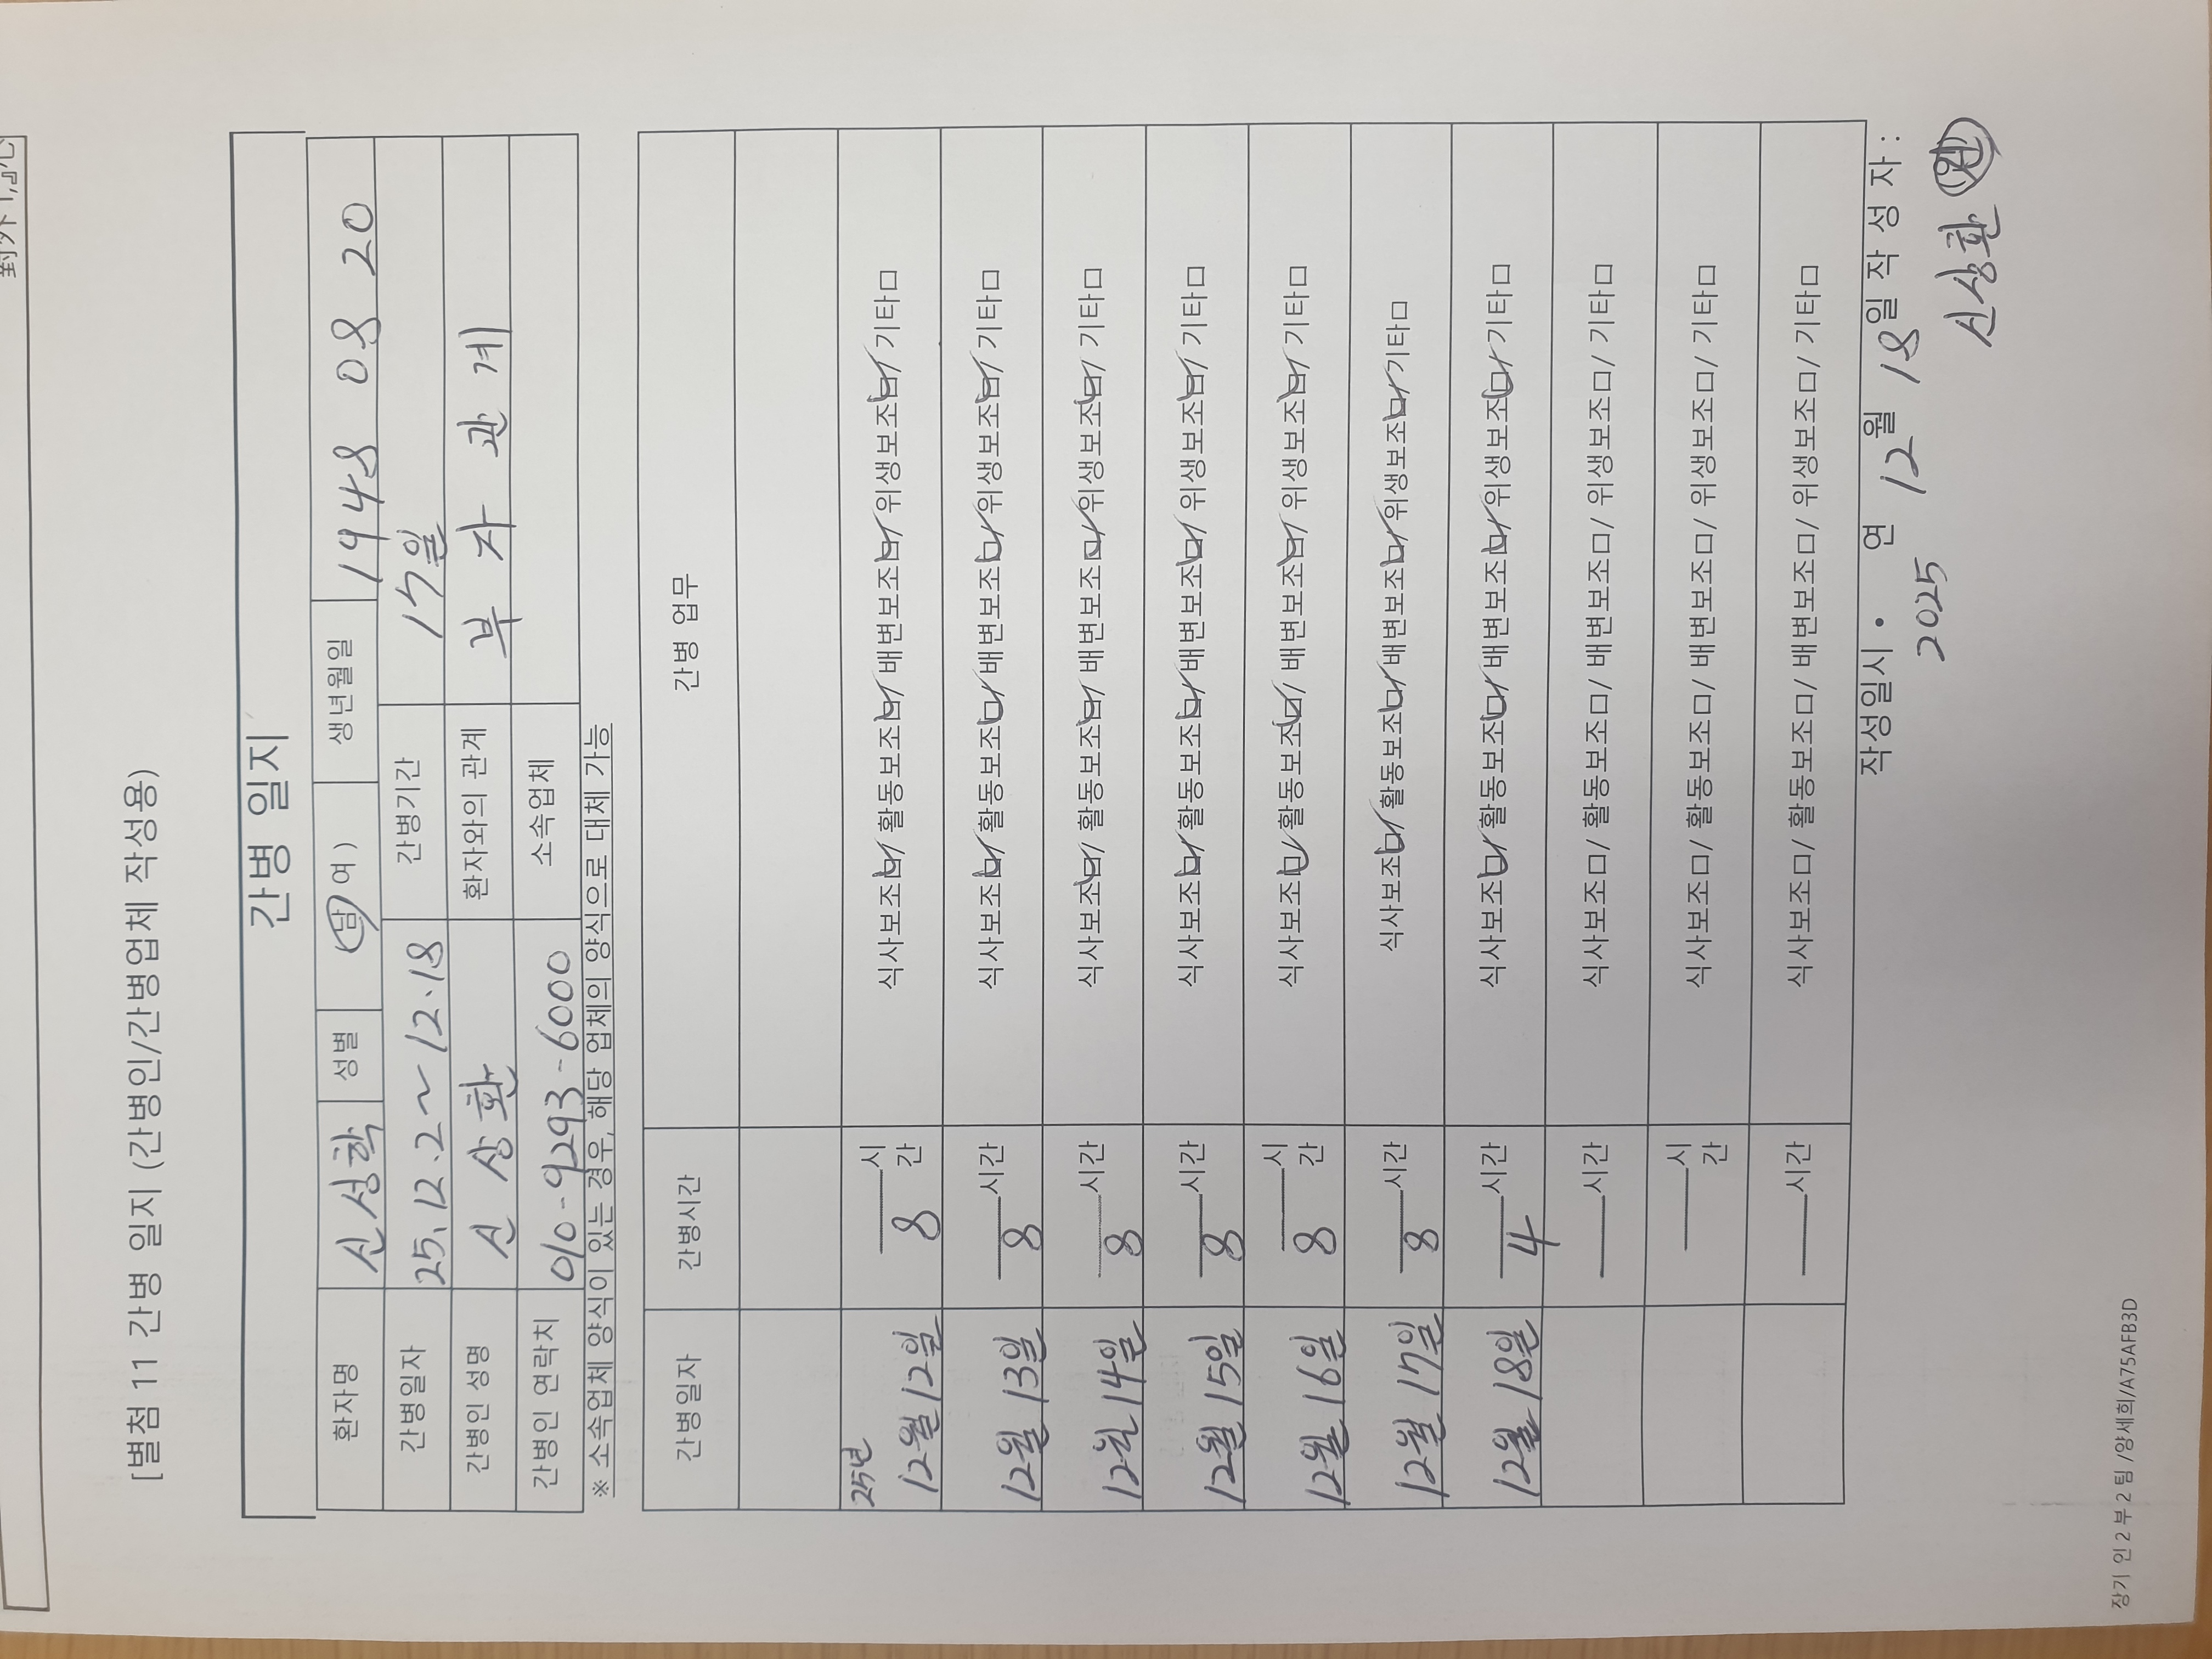 對外1,『心
[별첨 11 간병 일지 (간병인/간병업체 작성용)
간병 일지
환자명 신성학 성별 (남 여) 생년월일 1948 08 20
간병일자 25.12.2~12.18 간병기간 17일
간병인 성명 신상환 환자와의 관계 부자관계
간병인 연락처 010-9293-6000 소속업체
※ 소속업체 양식이 있는 경우, 해당 업체의 양식으로 대체 가능
간병일자 간병시간 간병 업무
25년 12월 12일 8 시간 식사보조☑/ 활동보조☑/ 배변보조☑/ 위생보조☑/ 기타□
12월 13일 8 시간 식사보조☑/ 활동보조☑/ 배변보조☑/ 위생보조☑/ 기타□
12월 14일 8 시간 식사보조☑/ 활동보조☑/ 배변보조☑/ 위생보조☑/ 기타□
12월 15일 8 시간 식사보조☑/ 활동보조☑/ 배변보조☑/ 위생보조☑/ 기타□
12월 16일 8 시간 식사보조☑/ 활동보조☑/ 배변보조☑/ 위생보조☑/ 기타□
12월 17일 8 시간 식사보조☑/ 활동보조☑/ 배변보조☑/ 위생보조☑/ 기타□
12월 18일 4 시간 식사보조☑/ 활동보조☑/ 배변보조☑/ 위생보조☑/ 기타□
시간 식사보조□/ 활동보조□/ 배변보조□/ 위생보조□/ 기타□
시간 식사보조□/ 활동보조□/ 배변보조□/ 위생보조□/ 기타□
시간 식사보조□/ 활동보조□/ 배변보조□/ 위생보조□/ 기타□
작성일시 • 2025 연 12월 18일 작 성 자 :
신상환
장기 인 2 부 2 팀 /양세희/A75AFB3D